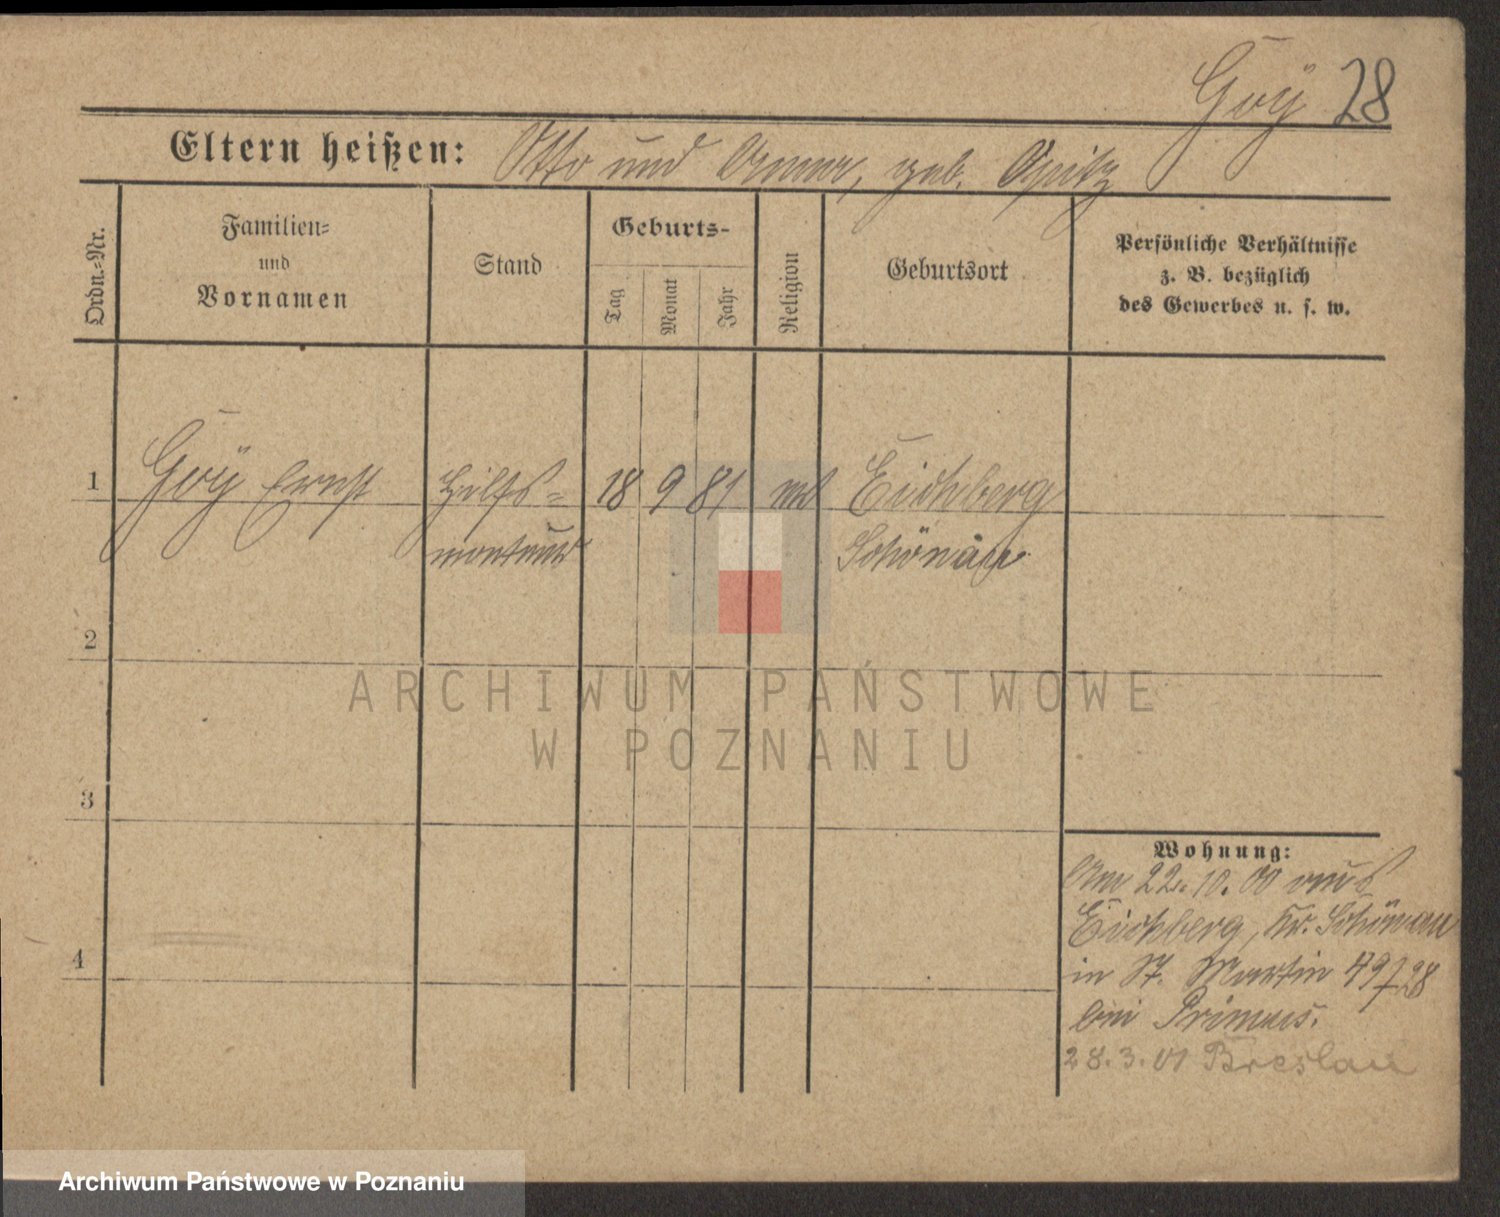 Goy 28
Eltern heißen: Otto und Anna, geb. Opitz
Ordn.-Nr.
Familien-
und
Vornamen
Stand
Geburts-
Tag
Monat
Jahr
Religion
Geburtsort
Persönliche Verhältnisse
z. B. bezüglich
des Gewerbes u. s. w.
1 Goy Ernst Hilfs- 18 9 81 Eichberg
monteur Schönau
2
ARCHIWUM PAŃSTWOWE
W POZNANIU
3
Wohnung:
Am 22.10.00 aus
Eichberg, Kr. Schönau
4
in St. Martin 49 28
bei Primus.
28.3.01 Breslau
Archiwum Państwowe w Poznaniu